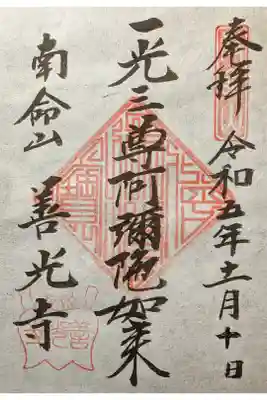 奉拝
令和五年十一月十日
一光三尊阿彌陀如来
南命山
善光寺